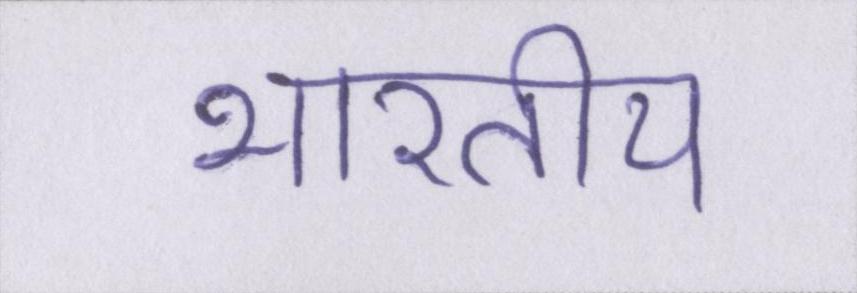 भारतीय